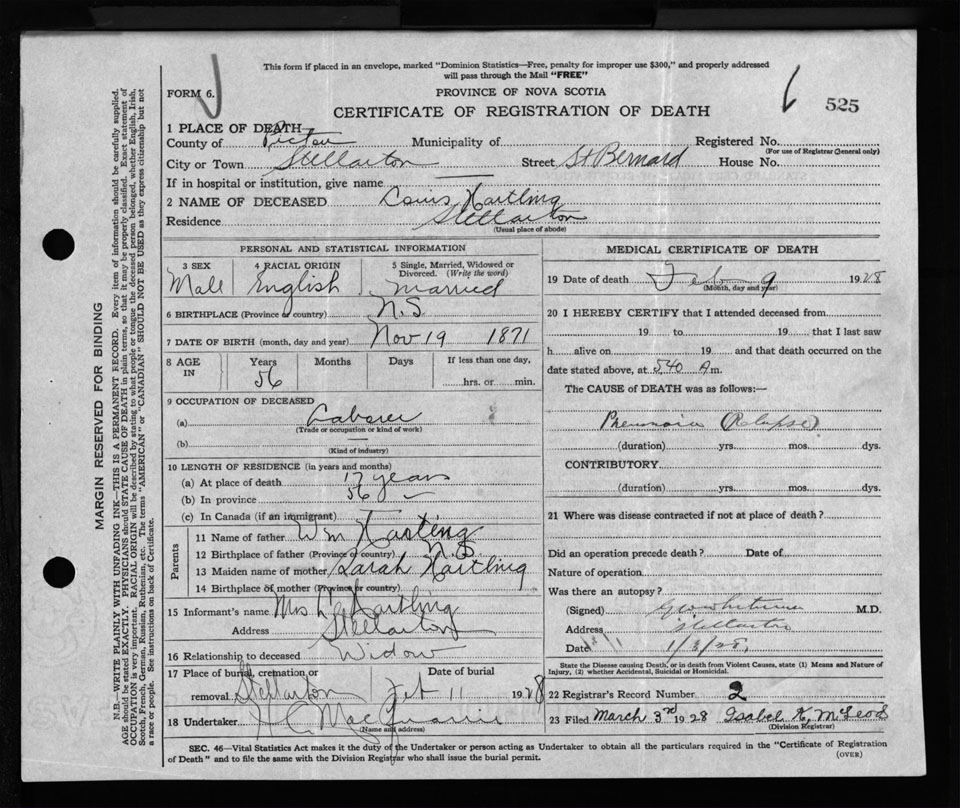 This form if placed in an envelope, marked "Dominion Statistics—Free, penalty for improper use $300," and properly addressed
will pass through the Mail "FREE"
FORM 6.
PROVINCE OF NOVA SCOTIA
CERTIFICATE OF REGISTRATION OF DEATH
525
1 PLACE OF DEATH
County of Pictou Municipality of Registered No.
(For use of Registrar General only)
City or Town Stellarton Street St Bernard House No.
If in hospital or institution, give name
2 NAME OF DECEASED Louis Hartling
Residence Stellarton
(Usual place of abode)
PERSONAL AND STATISTICAL INFORMATION
3 SEX 4 RACIAL ORIGIN 5 Single, Married, Widowed or Divorced. (Write the word)
Male English Married
6 BIRTHPLACE (Province or country) N.S.
7 DATE OF BIRTH (month, day and year) Nov 19 1871
8 AGE IN Years Months Days If less than one day,
56 hrs. or min.
9 OCCUPATION OF DECEASED
(a) Laborer
(Trade or occupation or kind of work)
(b)
(Kind of industry)
10 LENGTH OF RESIDENCE (in years and months)
(a) At place of death 17 years
(b) In province 56
(c) In Canada (if an immigrant)
Parents
11 Name of father Wm Hartling
12 Birthplace of father (Province or country) N.S.
13 Maiden name of mother Sarah Hartling
14 Birthplace of mother (Province or country)
15 Informant's name Mrs L Hartling
Address Stellarton
16 Relationship to deceased Widow
17 Place of burial, cremation or removal Stellarton Date of burial Feb 11 1928
18 Undertaker H C MacQuarrie
(Name and address)
MEDICAL CERTIFICATE OF DEATH
19 Date of death Feb 9 1928
(Month, day and year)
20 I HEREBY CERTIFY that I attended deceased from
19 to 19 that I last saw
h alive on 19 and that death occurred on the
date stated above, at 5.40 A m.
The CAUSE of DEATH was as follows:—
Pneumonia (Relapse)
(duration) yrs. mos. dys.
CONTRIBUTORY
(duration) yrs. mos. dys.
21 Where was disease contracted if not at place of death?
Did an operation precede death? Date of
Nature of operation
Was there an autopsy?
(Signed) M.D.
Address Stellarton
Date 1/3/28
State the Disease causing Death, or in death from Violent Causes, state (1) Means and Nature of
Injury, (2) whether Accidental, Suicidal or Homicidal.
22 Registrar's Record Number 2
23 Filed March 3rd 1928 Isabel K. McLeod
(Division Registrar)
SEC. 46—Vital Statistics Act makes it the duty of the Undertaker or person acting as Undertaker to obtain all the particulars required in the "Certificate of Registration
of Death" and to file the same with the Division Registrar who shall issue the burial permit.
(OVER)
MARGIN RESERVED FOR BINDING
N.B.—WRITE PLAINLY WITH UNFADING INK—THIS IS A PERMANENT RECORD. Every item of information should be carefully supplied.
AGE should be stated EXACTLY. PHYSICIANS should STATE CAUSE OF DEATH in plain terms, so that it may be properly classified. Exact statement of
OCCUPATION is very important. RACIAL ORIGIN will be described by stating to what people or tongue the deceased person belonged, whether English, Irish,
Scotch, French, German, Russian, Ruthenian, etc. The terms "AMERICAN" or "CANADIAN" SHOULD NOT BE USED as they express citizenship but not
a race or people. See instructions on back of Certificate.